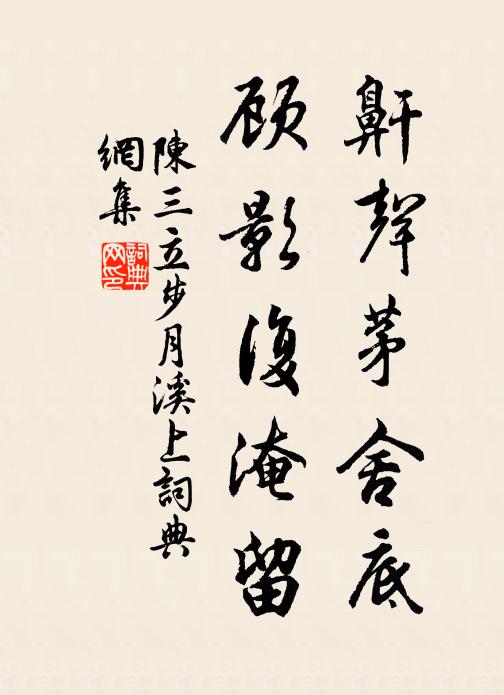 鼾聲茅舍底
顧影復淹留
陳三立步月溪上詞典
網集
詞典網印